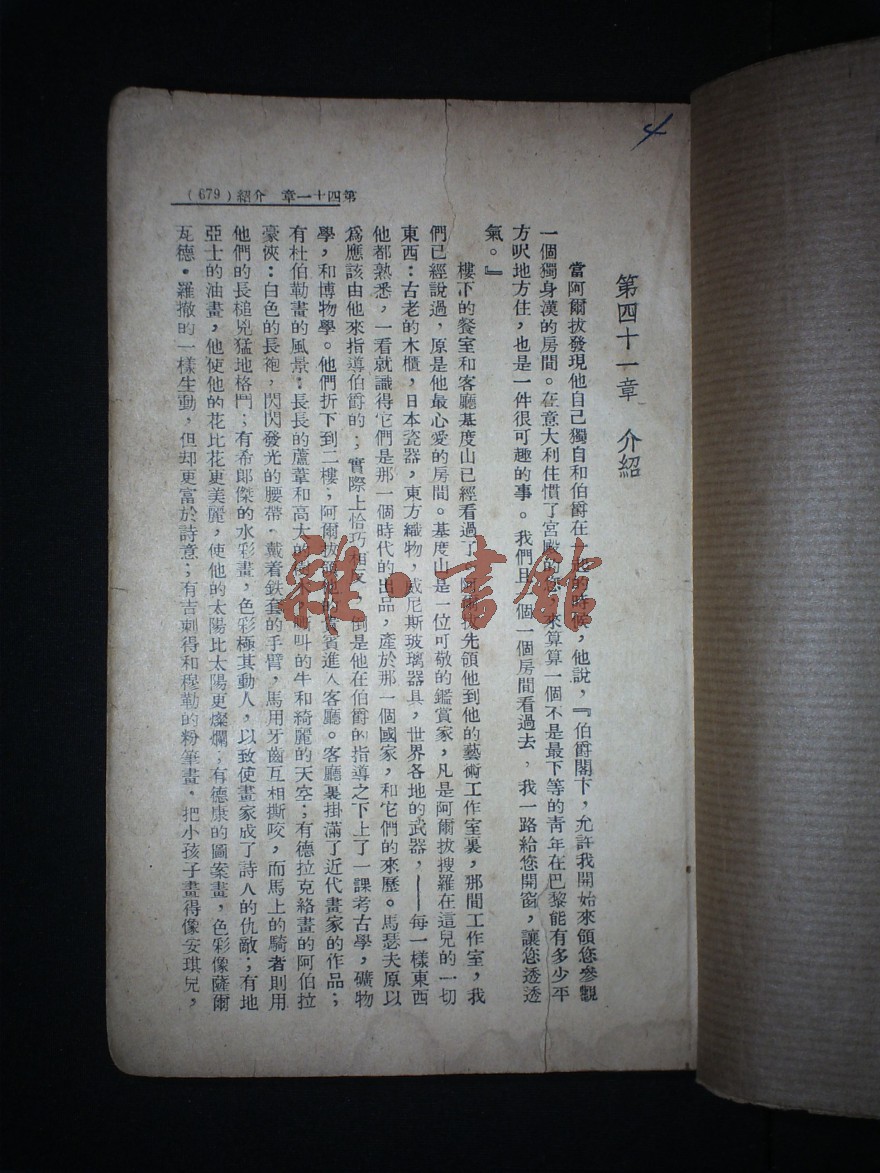 4
第四十一章 介紹 (679)
第四十一章 介紹
當阿爾拔發現他自己獨自和伯爵在一起的時候，他說，『伯爵閣下，允許我開始來領您參觀
一個獨身漢的房間。在意大利住慣了宮殿的您，來算算一個不是最下等的青年在巴黎能有多少平
方呎地方住，也是一件很可趣的事。我們且一個一個房間看過去，我一路給您開窗，讓您透透
氣。』
樓下的餐室和客廳基度山已經看過了。阿爾拔先領他到他的藝術工作室裏，那間工作室，我
們已經說過，原是他最心愛的房間。基度山是一位可敬的鑑賞家，凡是阿爾拔搜羅在這兒的一切
東西：古老的木櫃，日本瓷器，東方織物，威尼斯玻璃器具，世界各地的武器，——每一樣東西
他都熟悉，一看就識得它們是那一個時代的出品，產於那一個國家，和它們的來歷。馬瑟夫原以
爲應該由他來指導伯爵的；實際上恰巧相反，倒是他在伯爵的指導之下上了一課考古學，礦物
學，和博物學。他們折下到二樓；阿爾拔領他的貴賓進入客廳。客廳裏掛滿了近代畫家的作品；
有杜伯勒畫的風景：長長的蘆葦和高大的樹木，哞叫的牛和綺麗的天空；有德拉克絡畫的阿伯拉
豪俠：白色的長袍，閃閃發光的腰帶，戴着鉄套的手臂，馬用牙齒互相撕咬，而馬上的騎者則用
他們的長槌兇猛地格鬥；有希郎傑的水彩畫，色彩極其動人，以致使畫家成了詩人的仇敵；有地
亞士的油畫，他使他的花比花更美麗，使他的太陽比太陽更燦爛；有德康的圖案畫，色彩像薩爾
瓦德·羅撤的一樣生動，但却更富於詩意；有吉刺得和穆勒的粉筆畫，把小孩子畫得像安琪兒，
雜·書館